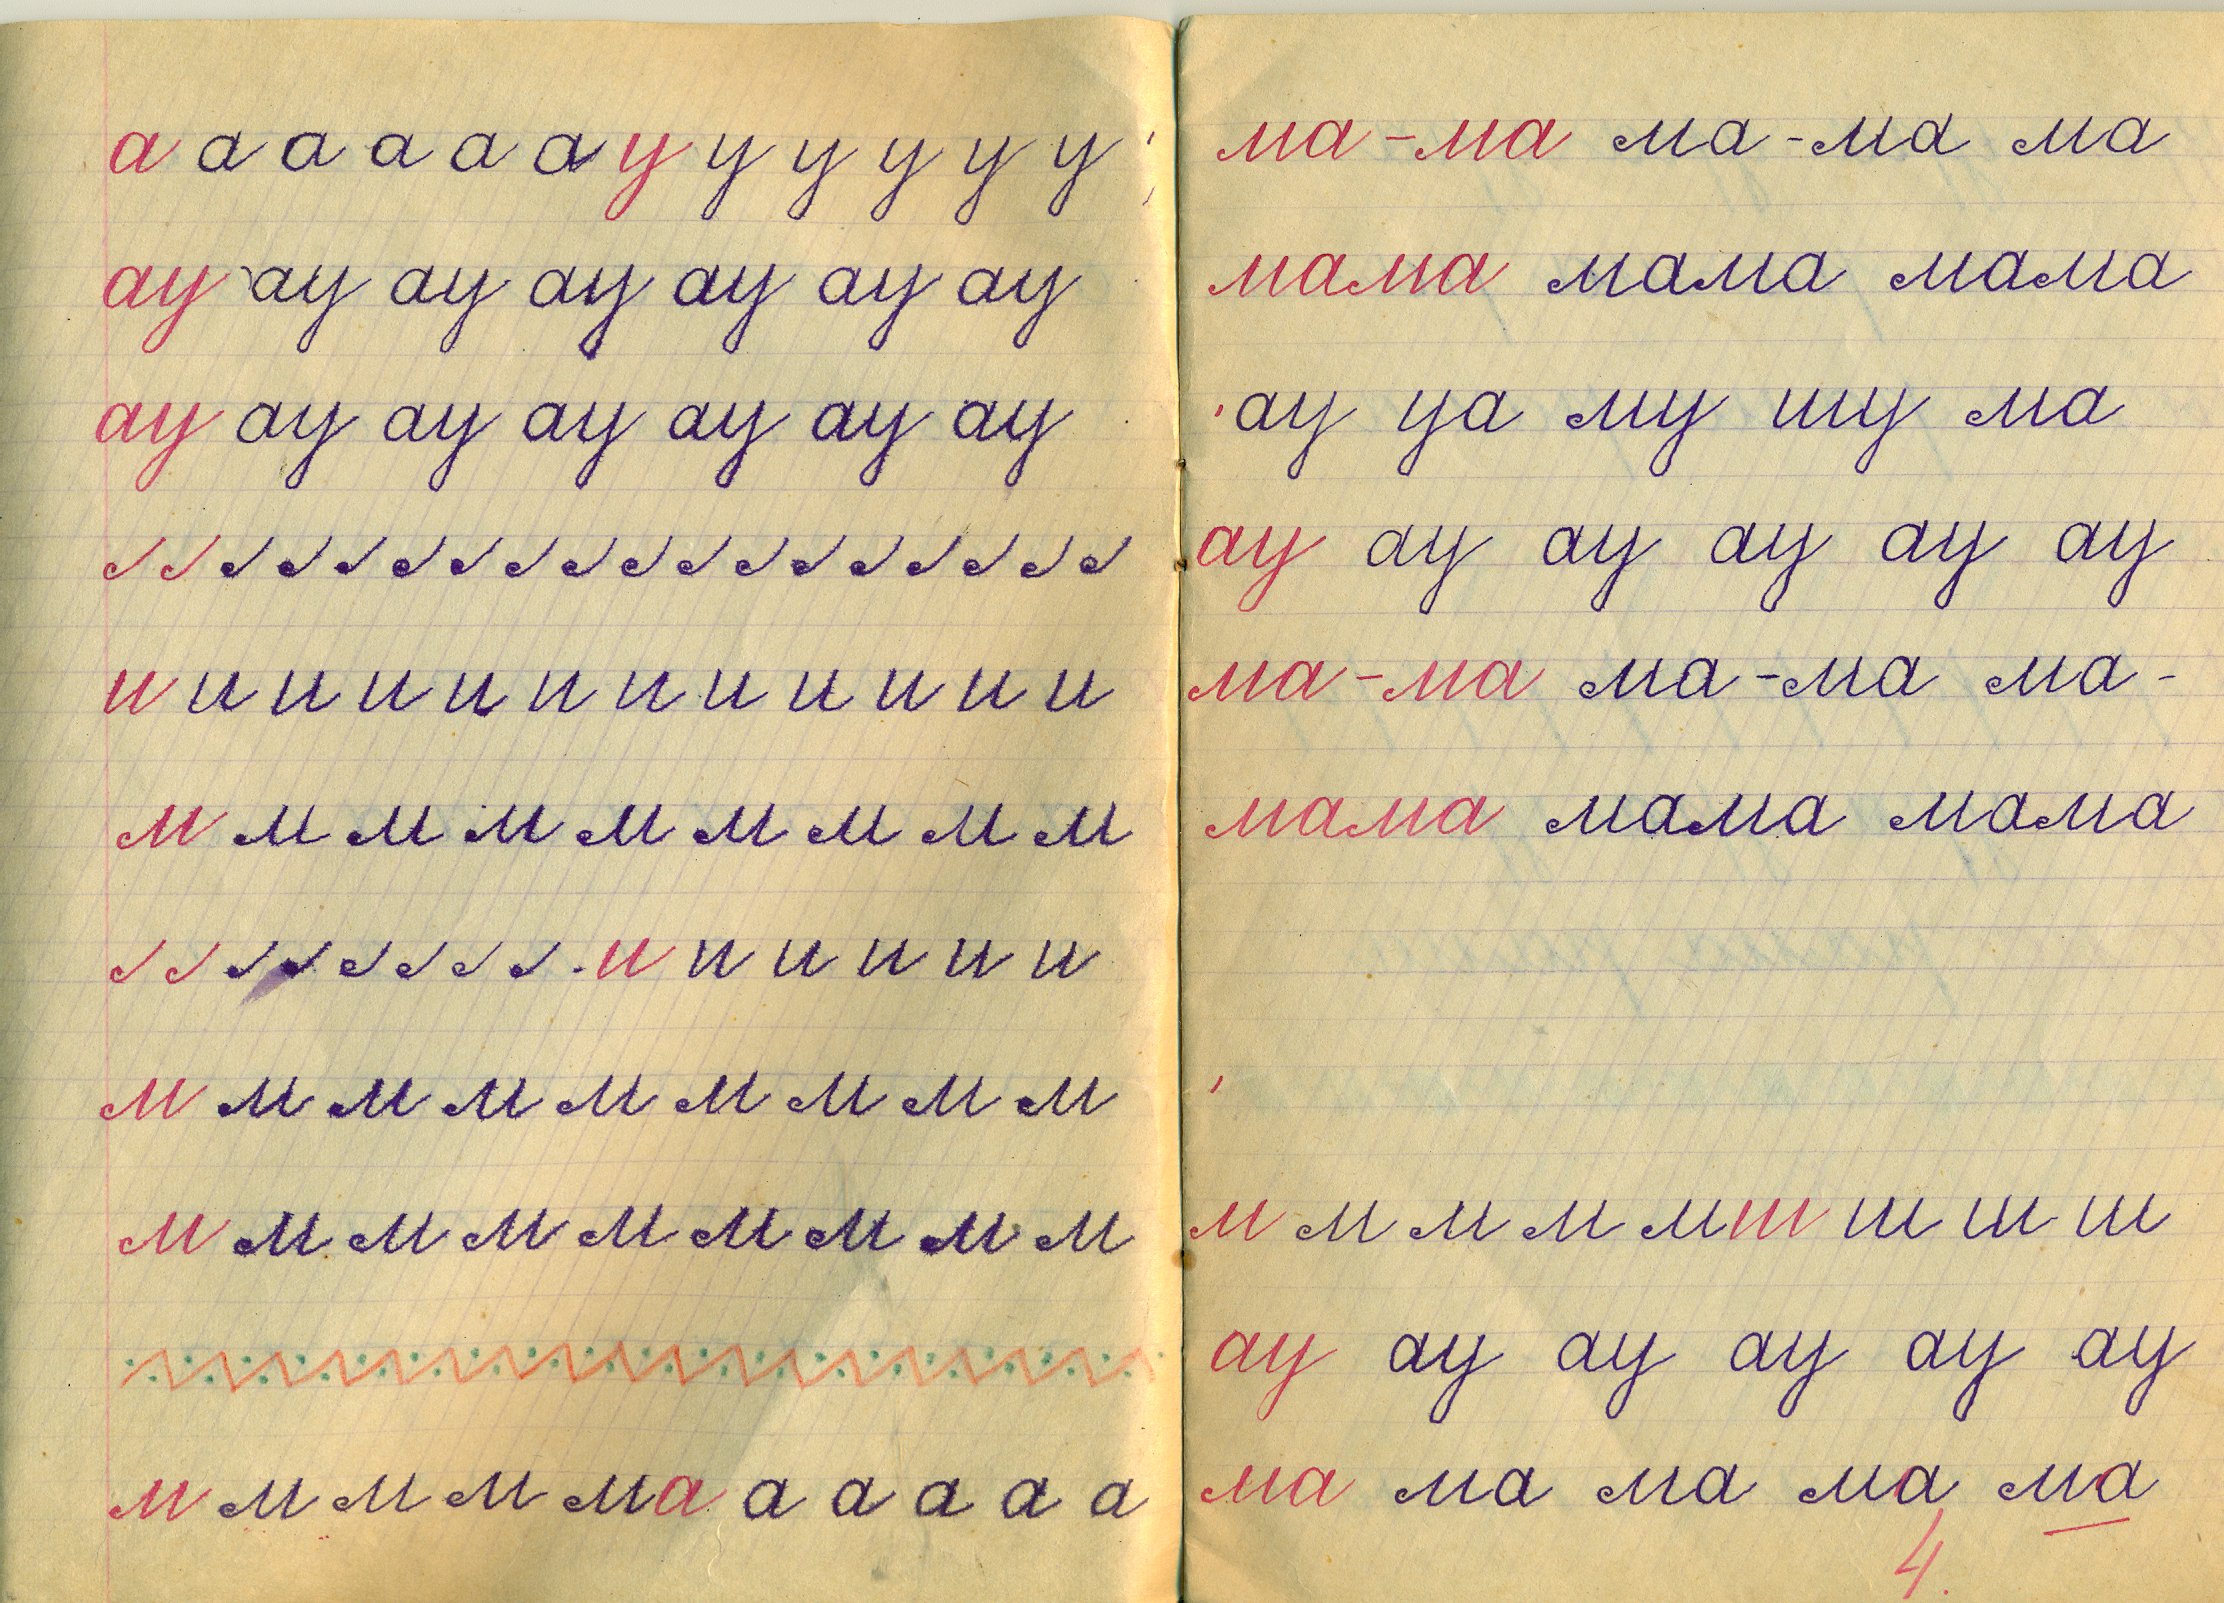 а а а а а а у у у у у у
ау ау ау ау ау ау ау
ау ау ау ау ау ау ау
и и и и и и и и и и и и
м м м м м м м м м
и и и и и и
м м м м м м м м м
м м м м м м м м м
м м м м м а а а а а а
ма-ма ма-ма ма
мама мама мама
ау уа му шу ма
ау ау ау ау ау ау
ма-ма ма-ма ма-
мама мама мама
м м м м м ш ш ш ш
ау ау ау ау ау ау
ма ма ма ма ма
4.